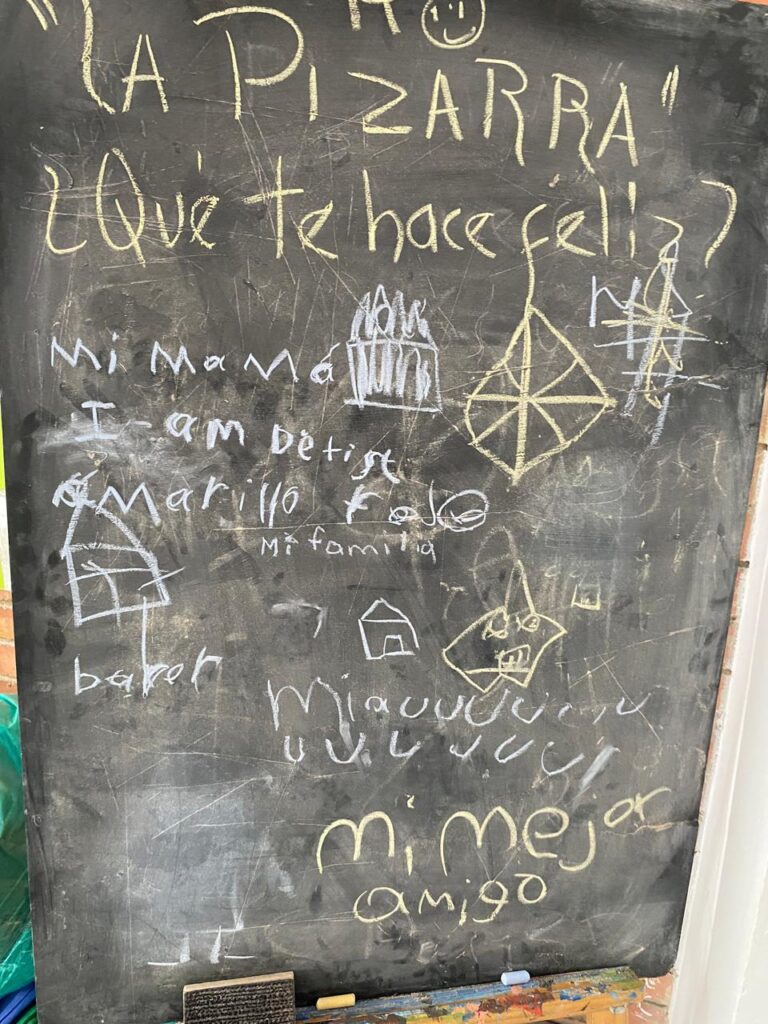 "LA PIZARRA"
¿Qué te hace feliz?
Mi MaMá
I-am Detist
aMarillo
Mi familia
Miauuuuuuu
uuuuuu
Mi Mejor
amigo